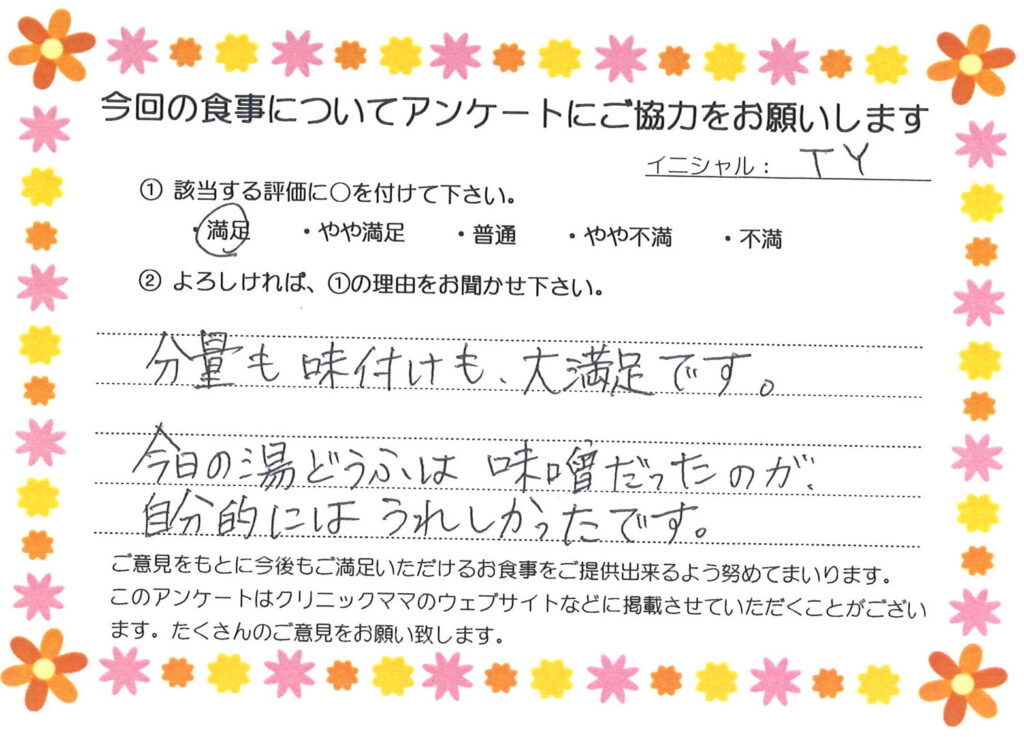 今回の食事についてアンケートにご協力をお願いします
イニシャル： TY
① 該当する評価に〇を付けて下さい。
・満足 ・やや満足 ・普通 ・やや不満 ・不満
② よろしければ、①の理由をお聞かせ下さい。
分量も味付けも、大満足です。
今日の湯どうふは 味噌だったのが、
自分的には うれしかったです。
ご意見をもとに今後もご満足いただけるお食事をご提供出来るよう努めてまいります。
このアンケートはクリニックママのウェブサイトなどに掲載させていただくことがござい
ます。たくさんのご意見をお願い致します。